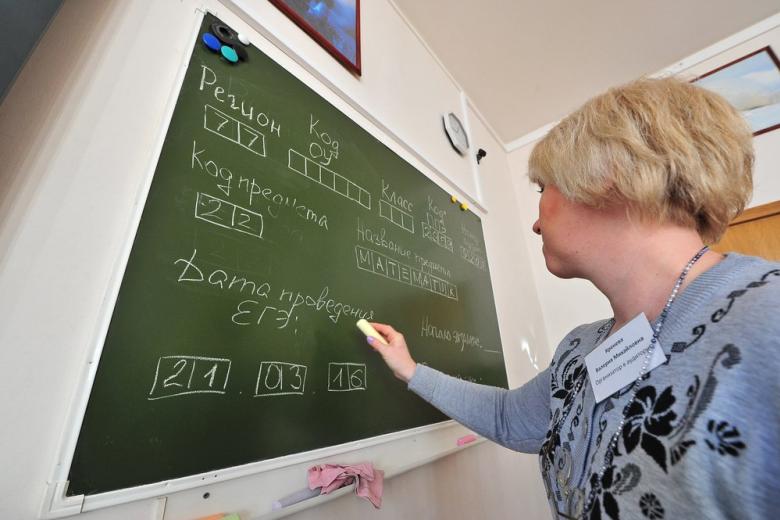 Регион
77
Код
ОУ
Класс
Код
ППЭ
Код предмета
22
Название предмета
МАТЕМАТИК
Дата проведения
ЕГЭ:
21.03.16
Валерия Михайловна
Организатор в аудитории